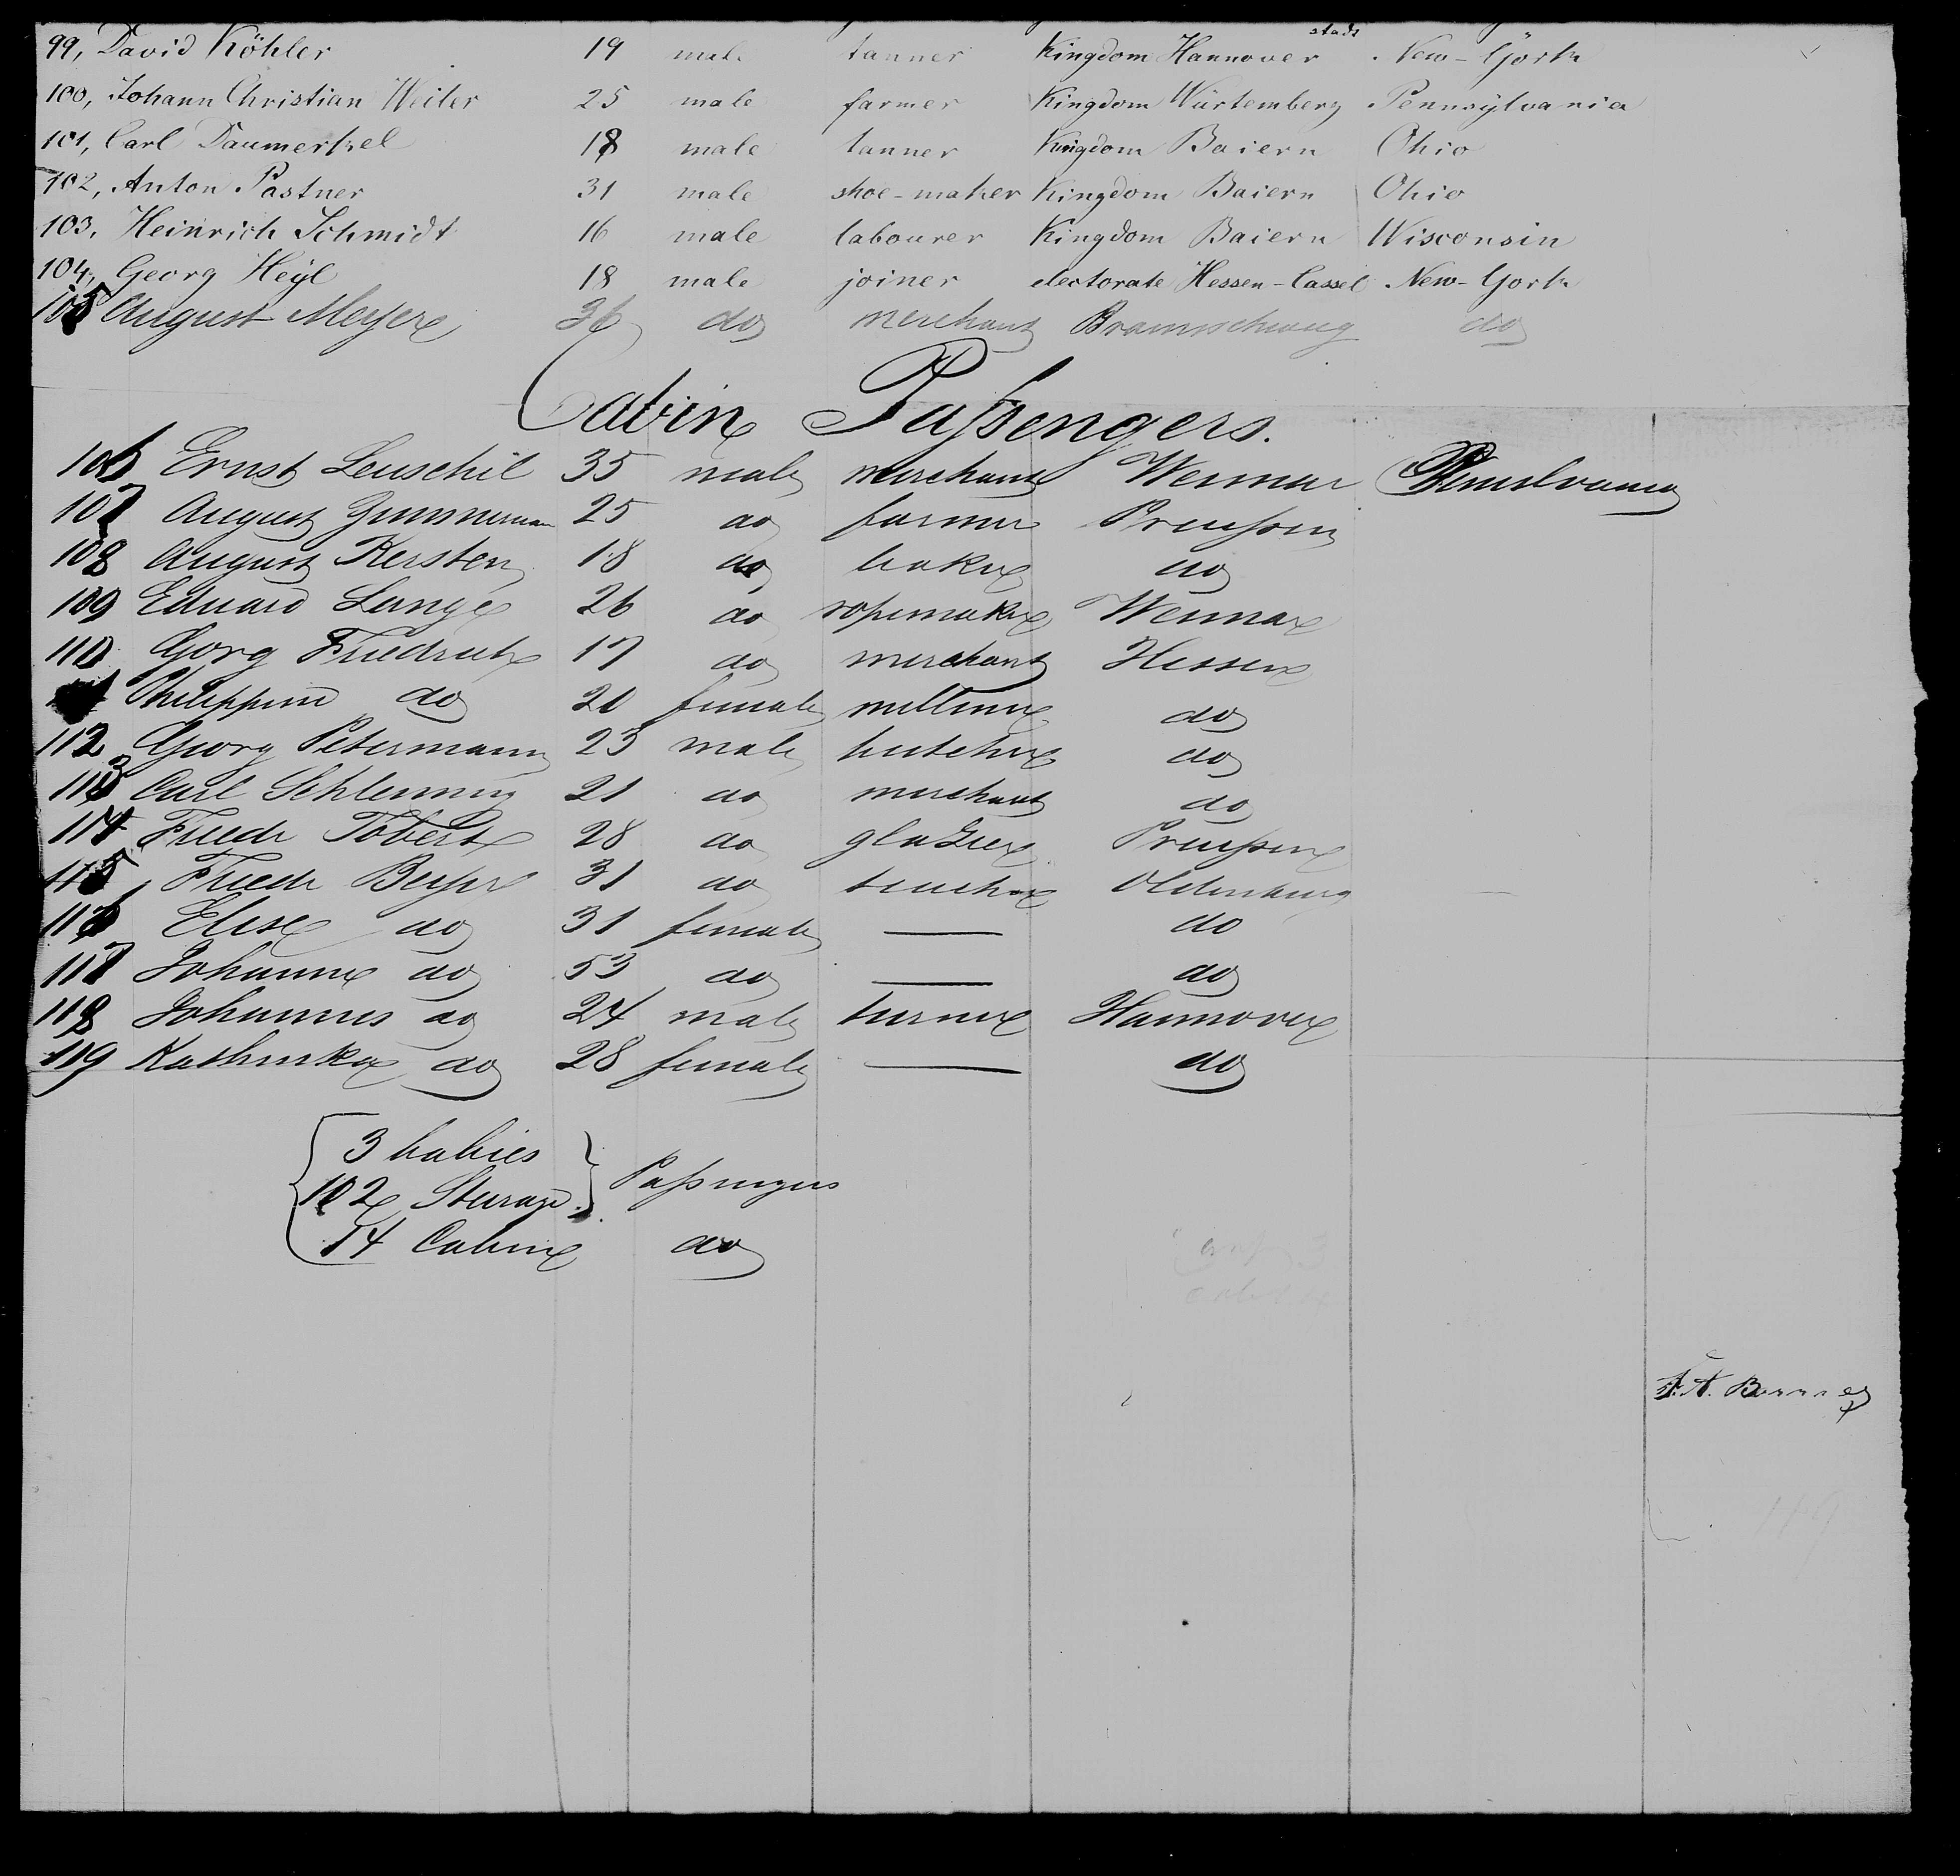 stadt
99, David Köhler 19 male tanner Kingdom Hannover New-Ÿork
100, Johann Christian Weiler 25 male farmer Kingdom Würtemberg Pennsÿlvania
101, Carl Daumerkel 18 male tanner Kingdom Baiern Ohio
102, Anton Pastner 31 male shoe-maker Kingdom Baiern Ohio
103, Heinrich Schmidt 16 male labourer Kingdom Baiern Wisconsin
104, Georg Heÿl 18 male joiner electorate Hessen-Cassel New-York
105 August Meyer 36 do merchant Braunschweig do
Cabin Passengers.
106 Ernst 35 male merchant Weimar
107 August 25 do farmer Preussen
108 August Kersten 18 do baker do
109 Eduard Lange 26 do ropemaker Weimar
110 Georg Friedrich 17 do merchant Hessen
Philippine do 20 female milliner do
112 Georg Petermann 23 male butcher do
113 Carl Schlemming 21 do merchant do
114 Friedr Tobert 28 do glazier Preussen
115 Friedr 31 do teacher Oldenburg
116 Elise do 31 female — do
117 Johanne do 53 do — do
118 Johannes do 24 male turner Hannover
119 Kathinka do 28 female — do
3 babies
102 Steerage Passengers
14 Cabin do